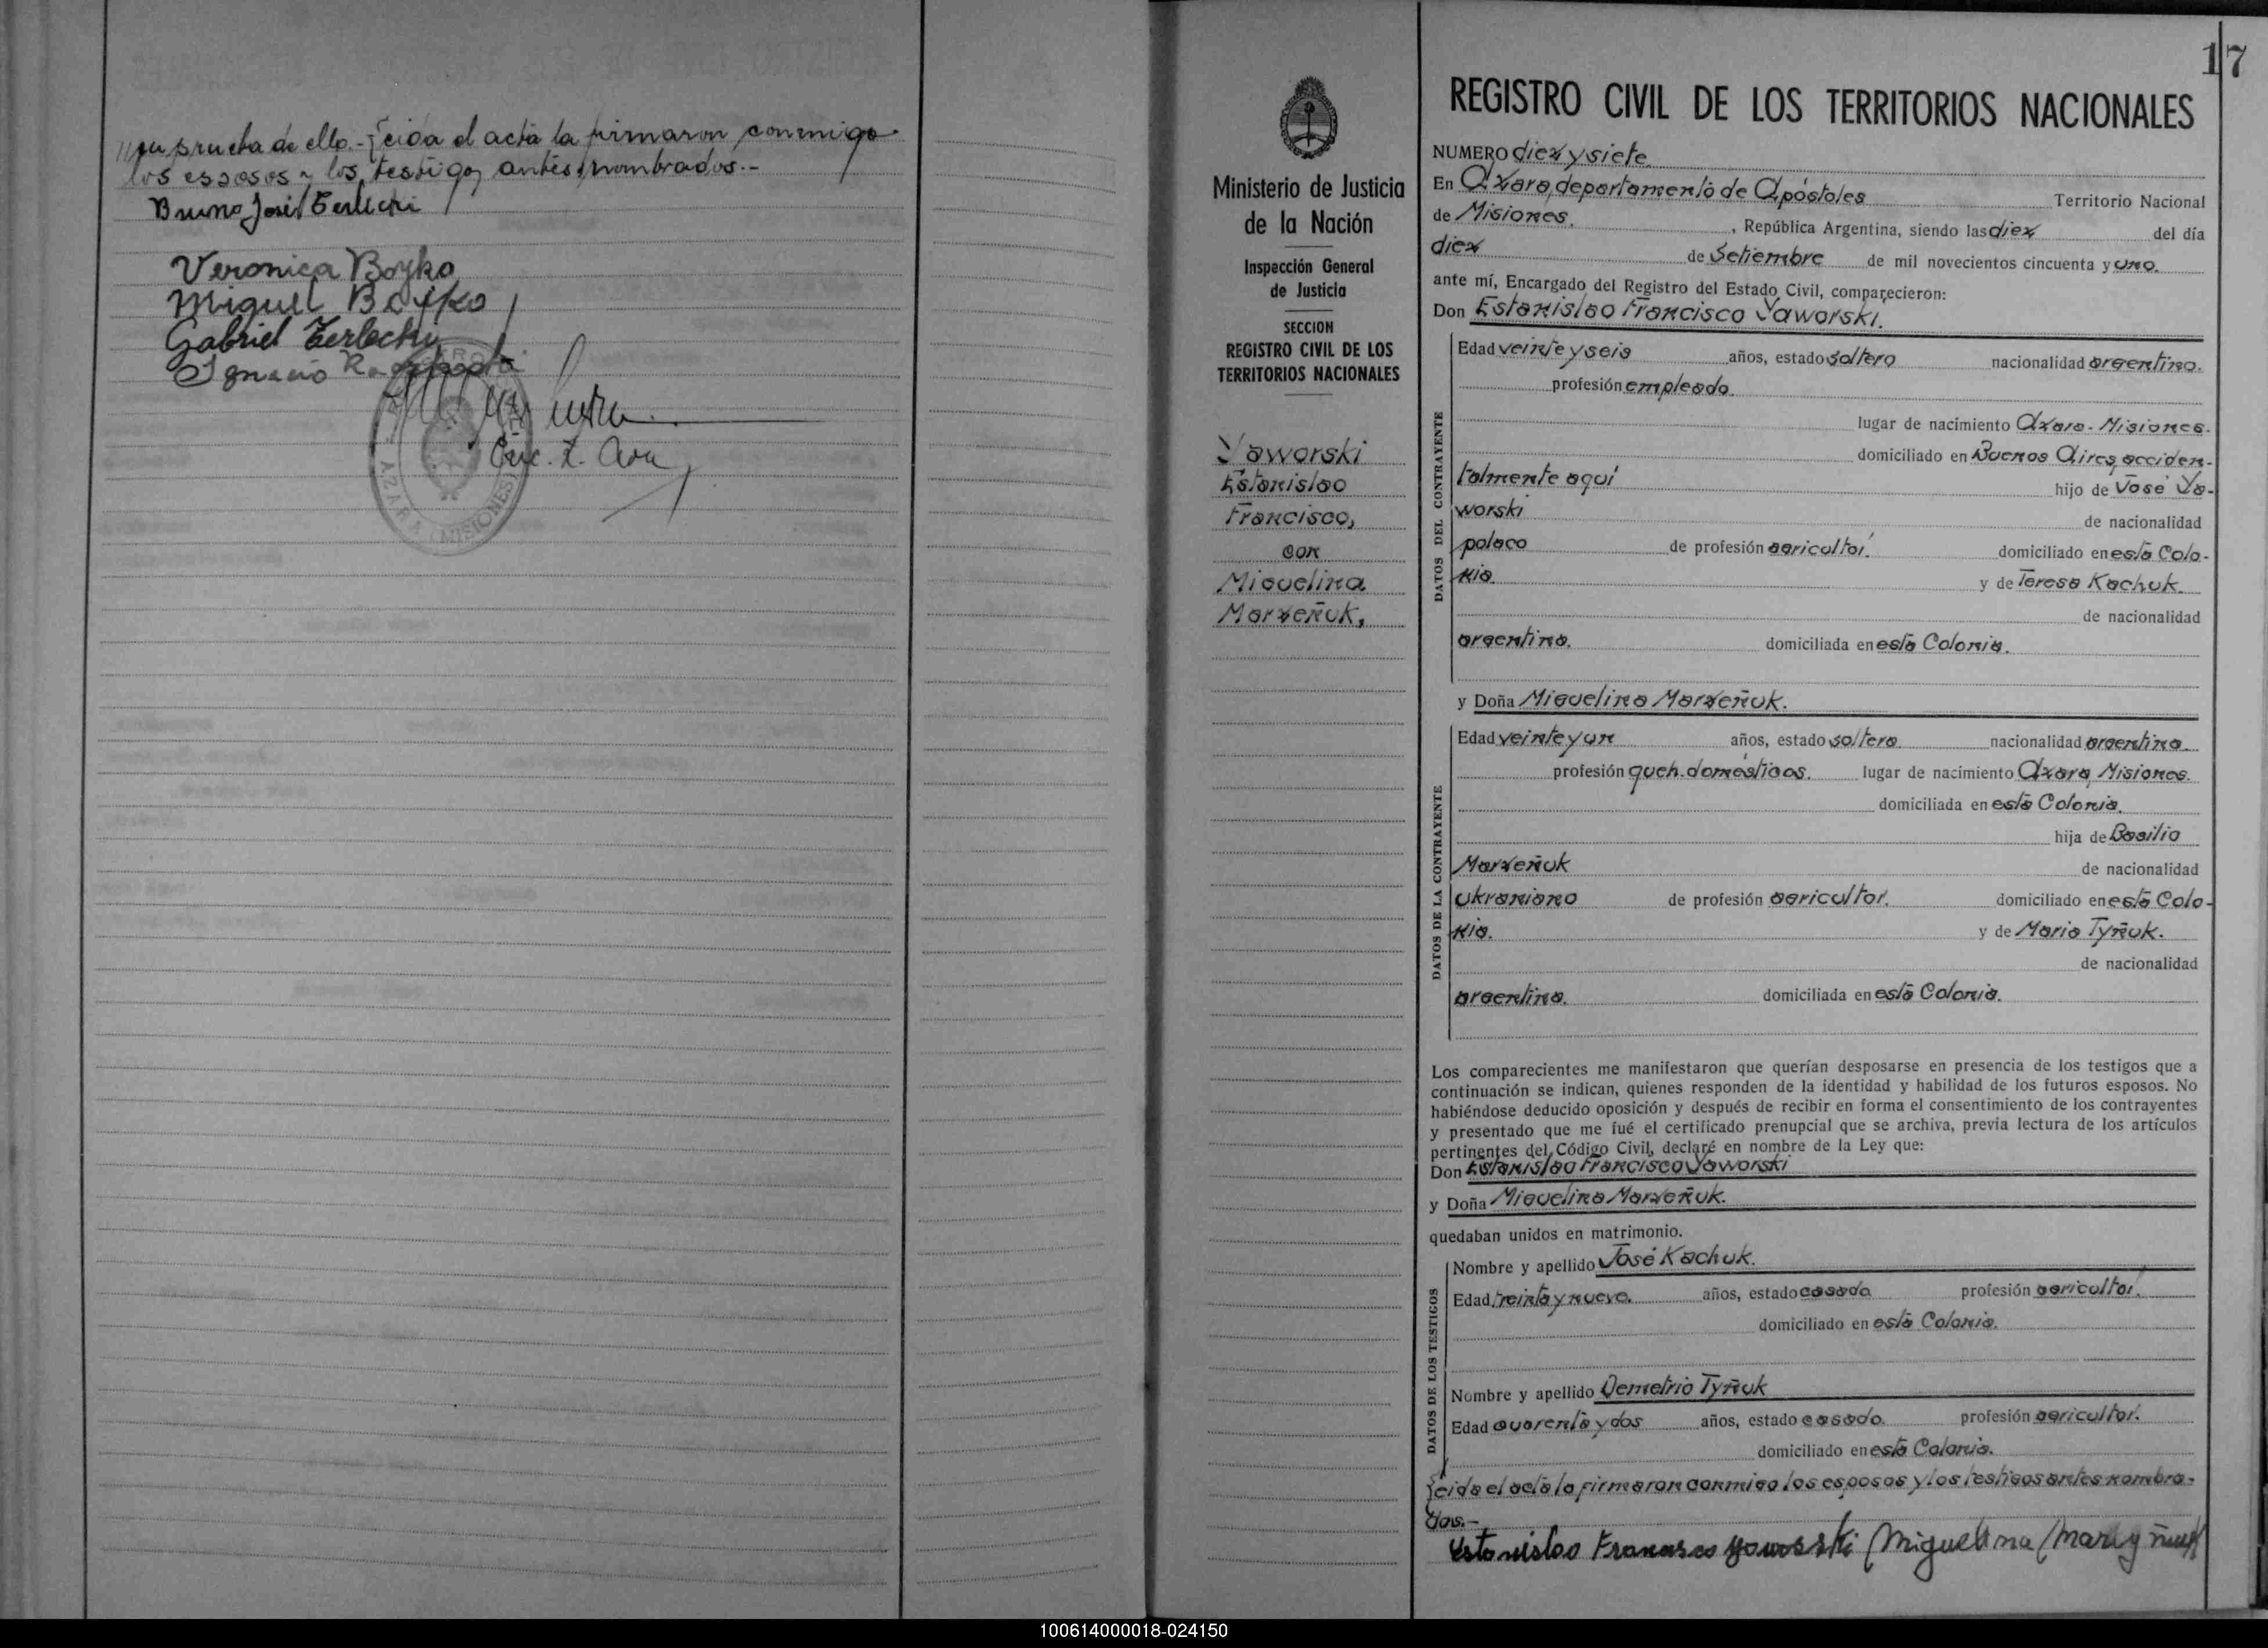 en prueba de ello.- Leida el acta la firmaron conmigo
los esposos y los testigos antes nombrados.-
Bruno José Terlecki
Veronica Boyko
Miguel Boyko
Gabriel Terlecky
Ignacio
Enc. R. Civil
AZARA (MISIONES)
17
Ministerio de Justicia
de la Nación
Inspección General
de Justicia
SECCION
REGISTRO CIVIL DE LOS
TERRITORIOS NACIONALES
Yaworski
Estanislao
Francisco,
con
Miguelina
Marzeñuk,
REGISTRO CIVIL DE LOS TERRITORIOS NACIONALES
NUMERO diez y siete
En Azara, departamento de Apóstoles Territorio Nacional
de Misiones. , República Argentina, siendo las diez del día
diez de Setiembre de mil novecientos cincuenta y uno.
ante mí, Encargado del Registro del Estado Civil, comparecieron:
Don Estanislao Francisco Yaworski.
DATOS DEL CONTRAYENTE
Edad veinte y seis años, estado soltero nacionalidad argentino.
profesión empleado.
lugar de nacimiento Azara - Misiones.
domiciliado en Buenos Aires, acciden-
talmente aquí hijo de José Ya-
worski de nacionalidad
polaco de profesión agricultor. domiciliado en esta Colo-
nia. y de Teresa Kachuk.
de nacionalidad
argentina. domiciliada en esta Colonia.
y Doña Miguelina Marzeñuk.
DATOS DE LA CONTRAYENTE
Edad veinte y un años, estado soltera. nacionalidad argentina.
profesión queh. domésticos. lugar de nacimiento Azara, Misiones.
domiciliada en esta Colonia.
hija de Basilio
Marzeñuk de nacionalidad
ukraniano de profesión agricultor. domiciliado en esta Colo-
nia. y de Maria Tyñuk.
de nacionalidad
argentina. domiciliada en esta Colonia.
Los comparecientes me manifestaron que querían desposarse en presencia de los testigos que a
continuación se indican, quienes responden de la identidad y habilidad de los futuros esposos. No
habiéndose deducido oposición y después de recibir en forma el consentimiento de los contrayentes
y presentado que me fué el certificado prenupcial que se archiva, previa lectura de los artículos
pertinentes del Código Civil, declaré en nombre de la Ley que:
Don Estanislao Francisco Yaworski
y Doña Miguelina Marzeñuk.
quedaban unidos en matrimonio.
DATOS DE LOS TESTIGOS
Nombre y apellido José Kachuk.
Edad treinta y nueve. años, estado casado profesión agricultor.
domiciliado en esta Colonia.
Nombre y apellido Demetrio Tyñuk
Edad cuarenta y dos años, estado casado. profesión agricultor.
domiciliado en esta Colonia.
Leida el acta la firmaron conmigo los esposos y los testigos antes nombra-
dos.-
Estanislao Francisco Yaworski Miguelina Marzyñuk
100614000018-024150